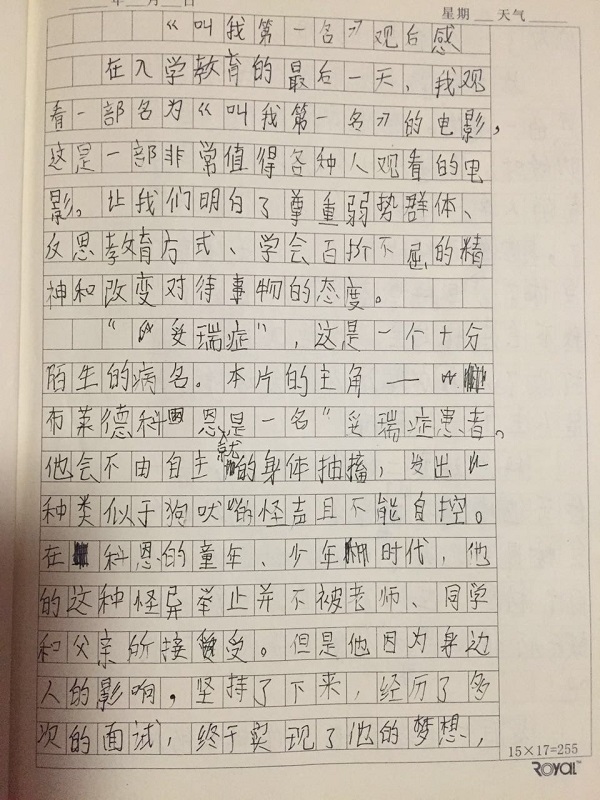 年 月 日 星期 天气
《叫我第一名》观后感
在入学教育的最后一天，我观
看一部名为《叫我第一名》的电影，
这是一部非常值得各种人观看的电
影。让我们明白了尊重弱势群体、
反思教育方式、学会百折不屈的精
神和改变对待事物的态度。
“妥瑞症”，这是一个十分
陌生的病名。本片的主角——
布莱德科恩是一名“妥瑞症患者。
他会不由自主就的身体抽搐，发出
种类似于狗吠的怪声且不能自控。
在科恩的童年、少年时代，他
的这种怪异举止并不被老师、同学
和父亲所接受。但是他因为身边
人的影响，坚持了下来，经历了多
次的面试，终于实现了他的梦想，
15×17=255
ROYAL